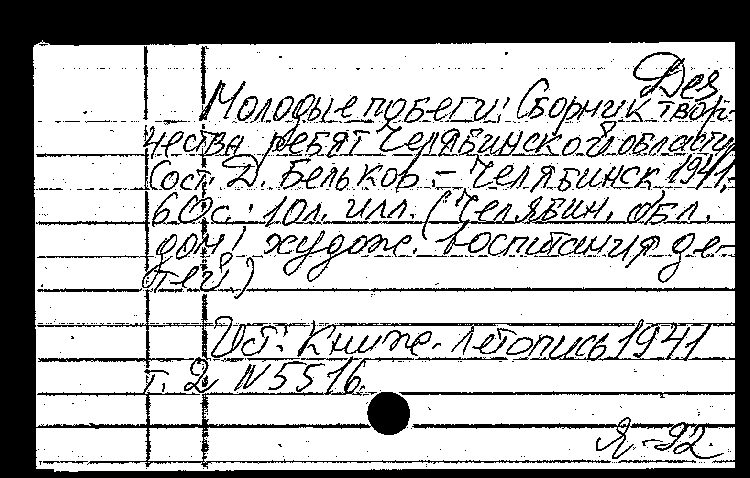 Дез
Молодые побеги: Сборник твор-
чества ребят Челябинской области
Сост. Д. Бельков. - Челябинск 1941.-
60с.: 10л. илл. (Челябин. обл.
дом худож. воспитания де-
тей.)
Ист: Книжн. летопись 1941
т. 2 N 5516.
Я-92.